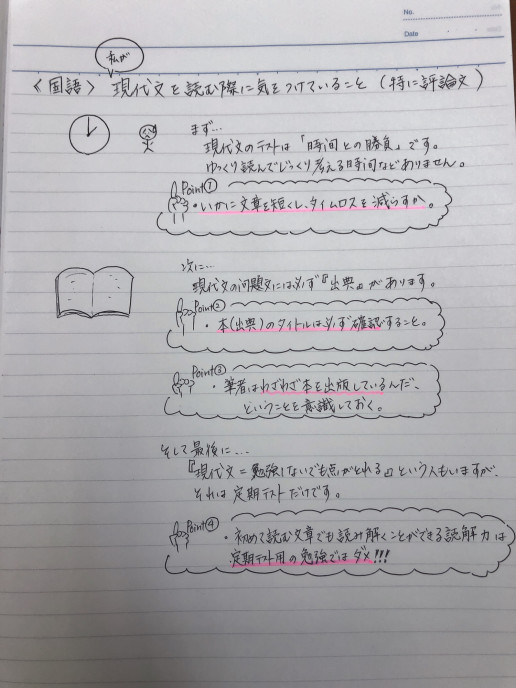 No.
Date
私が
〈国語〉 現代文を読む際に気をつけていること (特に評論文)
まず…
現代文のテストは「時間との勝負」です。
ゆっくり読んでじっくり考える時間などありません。
Point①
・いかに文章を短くし、タイムロスを減らすか。
次に…
現代文の問題文には必ず『出典』があります。
Point②
・本(出典)のタイトルは必ず確認すること。
Point③
・筆者はわざわざ本を出版しているんだ、
ということを意識しておく。
そして最後に…
『現代文=勉強しないでも点がとれる』という人もいますが、
それは定期テストだけです。
Point④
・初めて読む文章でも読み解くことができる読解力は
定期テスト用の勉強ではダメ!!!